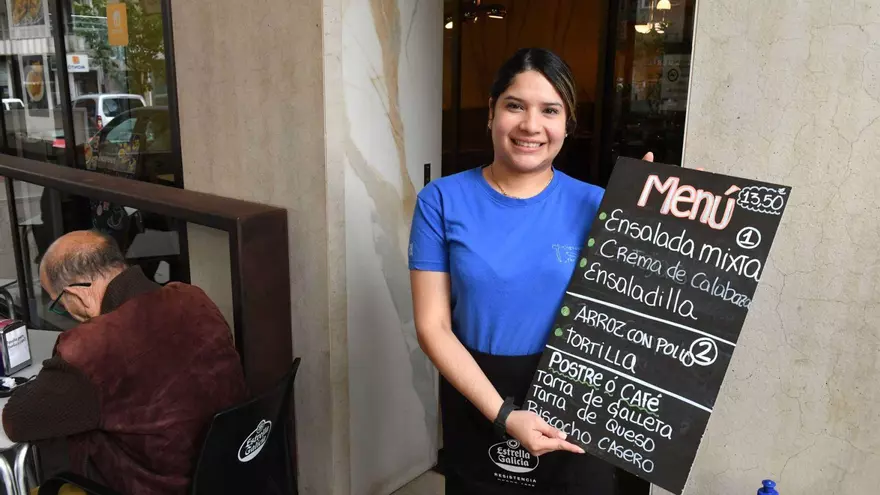 Menú 13,50
1
Ensalada mixta
Crema de calabaza
Ensaladilla
2
ARROZ CON POLLO
TORTILLA
POSTRE ó CAFÉ
Tarta de galleta
Tarta de Queso
Biscocho casero
Estrella
Galicia
RESISTENCIA
Estrella
Galicia